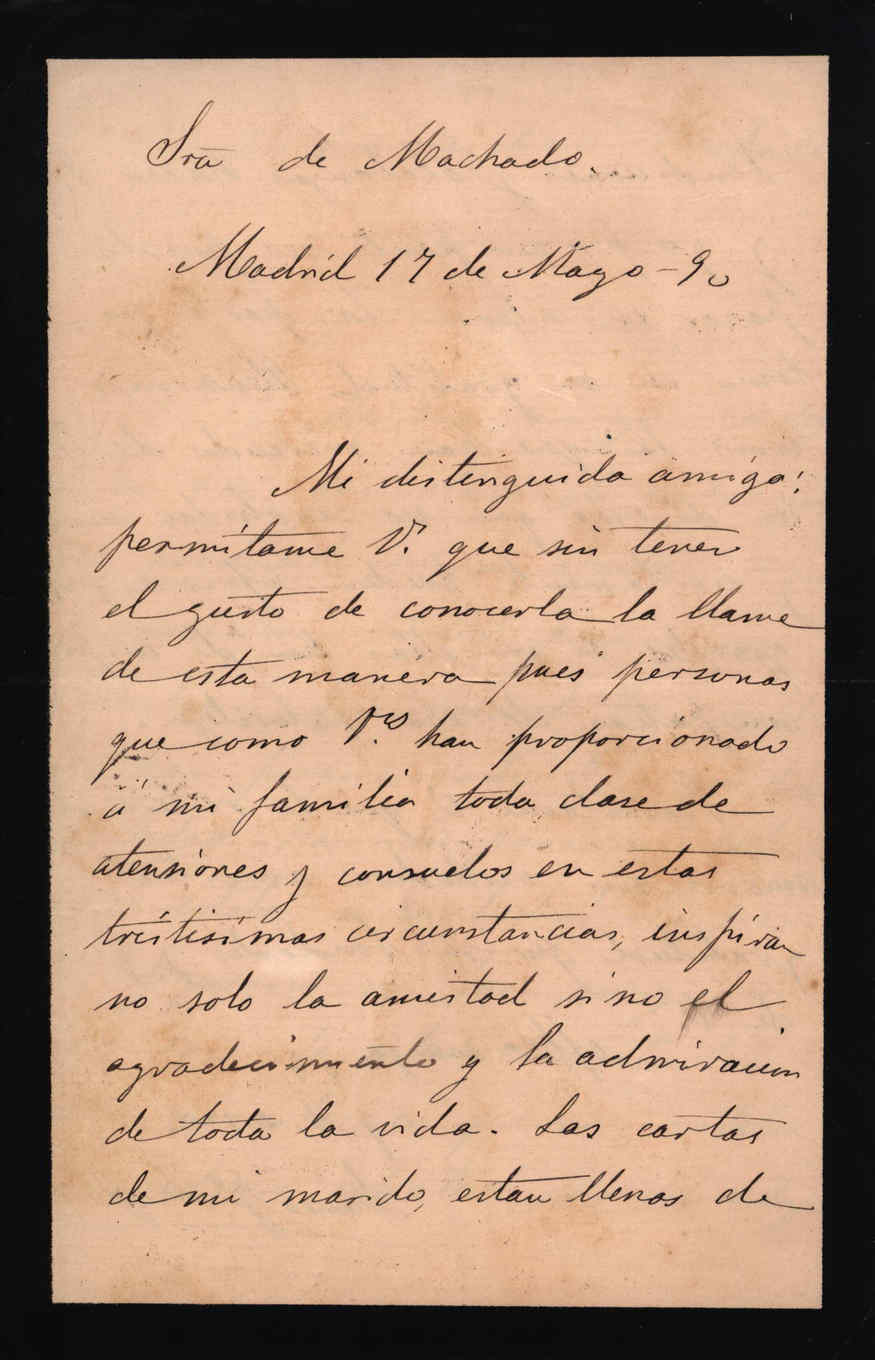 Sra de Machado.
Madrid 17 de Mayo - 90
Mi distinguida amiga:
permítame V. que sin tener
el gusto de conocerla la llame
de esta manera pues personas
que como V.es han proporcionado
á mi familia toda clase de
atensiones y consuelos en estas
tristísimas circunstancias, inspiran
no solo la amistad sino el
agradecimiento y la admiracion
de toda la vida. Las cartas
de mi marido, estan llenas de